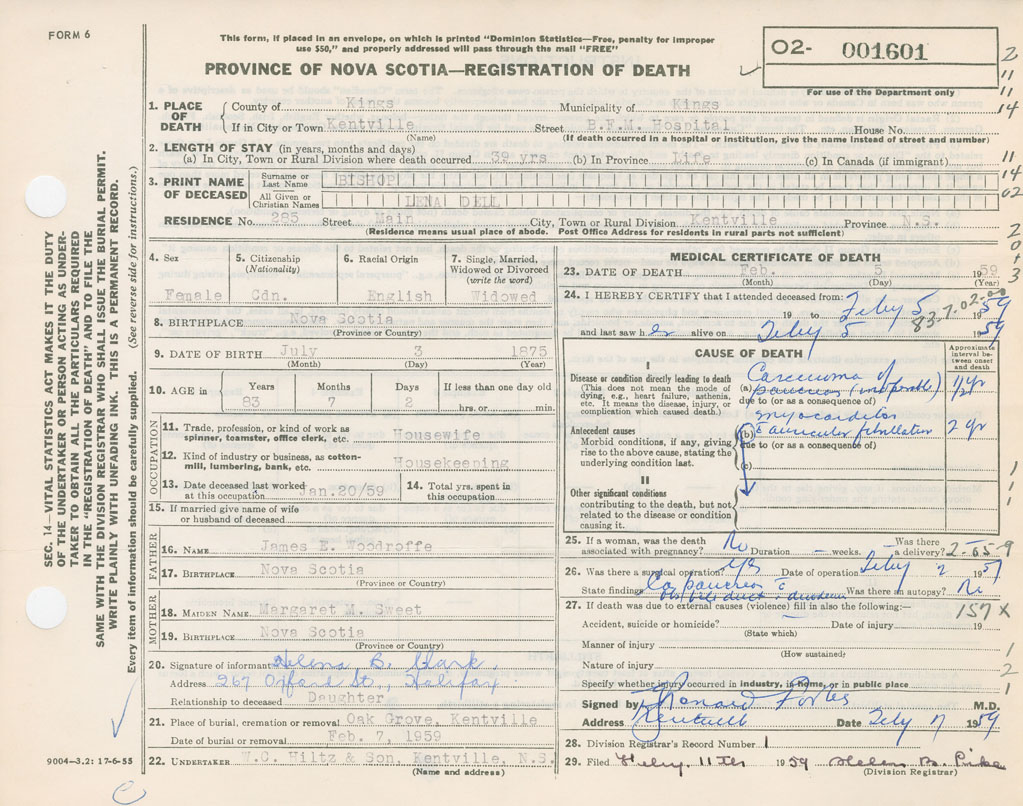 FORM 6
This form, if placed in an envelope, on which is printed "Dominion Statistics—Free, penalty for improper
use $50," and properly addressed will pass through the mail "FREE"
PROVINCE OF NOVA SCOTIA—REGISTRATION OF DEATH
02- 001601
For use of the Department only
2
11
14
11
14
02
2
0
+
3
SEC. 14—VITAL STATISTICS ACT MAKES IT THE DUTY
OF THE UNDERTAKER OR PERSON ACTING AS UNDER-
TAKER TO OBTAIN ALL THE PARTICULARS REQUIRED
IN THE "REGISTRATION OF DEATH" AND TO FILE THE
SAME WITH THE DIVISION REGISTRAR WHO SHALL ISSUE THE BURIAL PERMIT.
WRITE PLAINLY WITH UNFADING INK. THIS IS A PERMANENT RECORD.
Every item of information should be carefully supplied. (See reverse side for instructions.)
1. PLACE OF DEATH
County of Kings Municipality of Kings
If in City or Town Kentville Street B.F.M. Hospital House No.
(Name) (If death occurred in a hospital or institution, give the name instead of street and number)
2. LENGTH OF STAY (in years, months and days)
(a) In City, Town or Rural Division where death occurred 39 yrs (b) In Province Life (c) In Canada (if immigrant)
3. PRINT NAME OF DECEASED
Surname or Last Name BISHOP
All Given or Christian Names LENA DELL
RESIDENCE No. 285 Street Main City, Town or Rural Division Kentville Province N.S.
(Residence means usual place of abode. Post Office Address for residents in rural parts not sufficient)
4. Sex
Female
5. Citizenship
(Nationality)
Cdn.
6. Racial Origin
English
7. Single, Married,
Widowed or Divorced
(write the word)
Widowed
8. BIRTHPLACE Nova Scotia
(Province or Country)
9. DATE OF BIRTH July 3 1875
(Month) (Day) (Year)
10. AGE in
Years Months Days If less than one day old
83 7 2 hrs. or min.
OCCUPATION
11. Trade, profession, or kind of work as
spinner, teamster, office clerk, etc. Housewife
12. Kind of industry or business, as cotton-
mill, lumbering, bank, etc. Housekeeping
13. Date deceased last worked
at this occupation Jan.20/59
14. Total yrs. spent in
this occupation
15. If married give name of wife
or husband of deceased
FATHER
16. NAME James E. Woodroffe
17. BIRTHPLACE Nova Scotia
(Province or Country)
MOTHER
18. MAIDEN NAME Margaret M. Sweet
19. BIRTHPLACE Nova Scotia
(Province or Country)
20. Signature of informant Helena B. Clark,
Address 267 Oxford St., Halifax
Relationship to deceased Daughter
21. Place of burial, cremation or removal Oak Grove, Kentville
Date of burial or removal Feb. 7, 1959
22. UNDERTAKER W.C. Hiltz & Son, Kentville, N.S.
(Name and address)
9004—3.2: 17-6-55
MEDICAL CERTIFICATE OF DEATH
23. DATE OF DEATH Feb. 5 1959
(Month) (Day) (Year)
24. I HEREBY CERTIFY that I attended deceased from:
19 to Feby 5 1959
and last saw her alive on Feby 5 1959
83.7.02-00
CAUSE OF DEATH
Approximate
interval be-
tween onset
and death
I
Disease or condition directly leading to death
(This does not mean the mode of
dying, e.g., heart failure, asthenia,
etc. It means the disease, injury, or
complication which caused death.)
(a) Carcinoma of
pancreas (inoperable) 1/2 yr
due to (or as a consequence of)
Antecedent causes
Morbid conditions, if any, giving
rise to the above cause, stating the
underlying condition last.
myocarditis
(b) c auricular fibrillation 2 yr
due to (or as a consequence of)
(c)
II
Other significant conditions
contributing to the death, but not
related to the disease or condition
causing it.
1
1
1
25. If a woman, was the death
associated with pregnancy? No Duration — weeks. Was there
a delivery? 2-65-9
26. Was there a surgical operation? yes Date of operation Feby 2 1959
State findings Ca pancreas c Was there an autopsy? No
27. If death was due to external causes (violence) fill in also the following:—
157 x
Accident, suicide or homicide? Date of injury 19
(State which)
Manner of injury 1
(How sustained)
Nature of injury 2
Specify whether injury occurred in industry, in home, or in public place 1
Signed by Forbes M.D.
Address Kentville Date Feby 7 1959
28. Division Registrar's Record Number 1
29. Filed Feby. 11th 1959 Helen B. Pike
(Division Registrar)